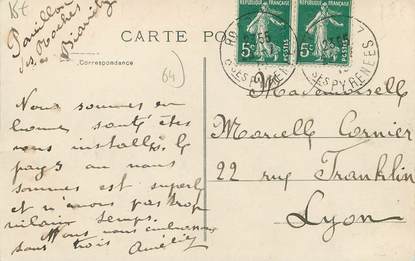 Pavillon
des Roches
Biarritz
CARTE POS
Correspondance
64
RÉPUBLIQUE FRANÇAISE
5c POSTES
RÉPUBLIQUE FRANÇAISE
5c POSTES
BSES PYRÉNÉES
Nous sommes en
bonne santé, très
bien installés, le
pays où nous
sommes est superbe
et n'avons pas trop
vilain temps.
Nous vous embrassons
tous trois
Mademoiselle
Marcelle Cornier
22 rue Franklin
Lyon